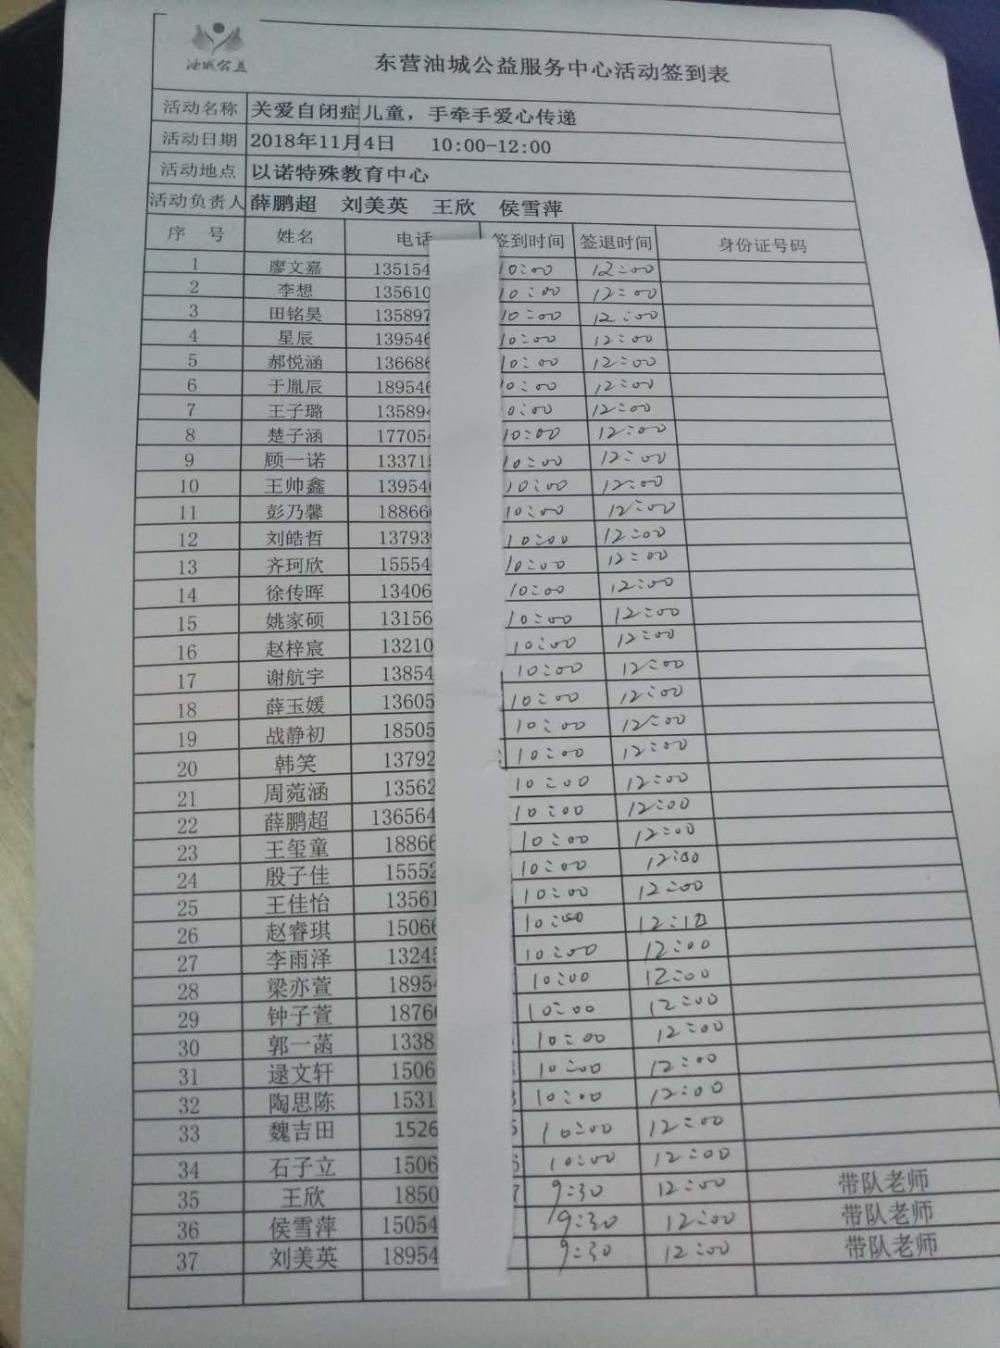 油城公益
东营油城公益服务中心活动签到表
活动名称 关爱自闭症儿童，手牵手爱心传递
活动日期 2018年11月4日 10:00-12:00
活动地点 以诺特殊教育中心
活动负责人 薛鹏超 刘美英 王欣 侯雪萍
序 号 姓名 电话 签到时间 签退时间 身份证号码
1 廖文嘉 135154 10:00 12:00
2 李想 135610 10:00 12:00
3 田铭昊 135897 10:00 12:00
4 星辰 139546 10:00 12:00
5 郝悦涵 136686 10:00 12:00
6 于胤辰 189546 10:00 12:00
7 王子璐 13589 0:00 12:00
8 楚子涵 17705 10:00 12:00
9 顾一诺 13371 10:00 12:00
10 王帅鑫 13954 10:00 12:00
11 彭乃馨 18866 10:00 12:00
12 刘皓哲 13793 10:00 12:00
13 齐珂欣 15554 10:00 12:00
14 徐传晖 13406 10:00 12:00
15 姚家硕 13156 10:00 12:00
16 赵梓宸 13210 10:00 12:00
17 谢航宇 13854 10:00 12:00
18 薛玉媛 13605 10:00 12:00
19 战静初 18505 10:00 12:00
20 韩笑 13792 10:00 12:00
21 周菀涵 13562 10:00 12:00
22 薛鹏超 136564 10:00 12:00
23 王玺童 18866 10:00 12:00
24 殷子佳 15552 10:00 12:00
25 王佳怡 13561 10:00 12:00
26 赵睿琪 15066 10:00 12:10
27 李雨泽 13245 10:00 12:00
28 梁亦萱 1895 10:00 12:00
29 钟子萱 1876 10:00 12:00
30 郭一菡 1338 10:00 12:00
31 逯文轩 1506 10:00 12:00
32 陶思陈 1531 10:00 12:00
33 魏吉田 1526 10:00 12:00
34 石子立 1506 10:00 12:00
35 王欣 1850 7 9:30 12:00 带队老师
36 侯雪萍 15054 9:30 12:00 带队老师
37 刘美英 18954 9:30 12:00 带队老师